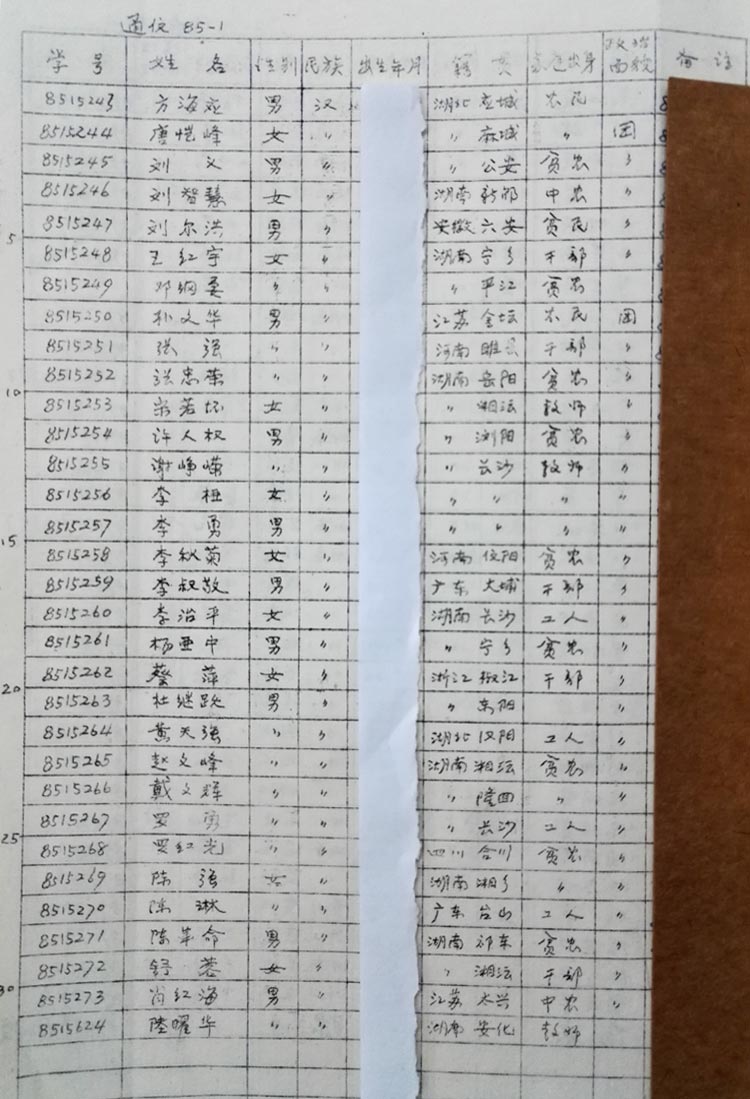 通信 85-1
学号 姓名 性别 民族 出生年月 籍贯 家庭出身 政治面貌 备注
8515243 方海 男 汉 湖北 应城 农民
8515244 唐恺峰 女 〃 〃 麻城 〃 团
8515245 刘义 男 〃 〃 公安 贫农 〃
8515246 刘智慧 女 〃 湖南 新邵 中农 〃
5 8515247 刘尔洪 男 〃 安徽 六安 贫民 〃
8515248 王红宇 女 〃 湖南 宁乡 干部 〃
8515249 邓纲 〃 〃 〃 平江 贫农
8515250 朴文华 男 〃 江苏 金坛 农民 团
8515251 张强 〃 〃 河南 睢县 干部 〃
10 8515252 张忠荣 〃 〃 湖南 岳阳 贫农 〃
8515253 若 女 〃 〃 湘潭 教师 〃
8515254 许人权 男 〃 〃 浏阳 贫农 〃
8515255 谢峥嵘 〃 〃 〃 长沙 教师 〃
8515256 李 女 〃 〃 〃 〃 〃
15 8515257 李勇 男 〃 〃 〃 〃 〃
8515258 李秋菊 女 〃 河南 信阳 贫农 〃
8515259 李叔敖 男 〃 广东 大埔 干部 〃
8515260 李治平 女 〃 湖南 长沙 工人 〃
8515261 杨亚中 男 〃 〃 宁乡 贫农 〃
20 8515262 蔡萍 女 〃 浙江 椒江 干部 〃
8515263 杜继跃 男 〃 〃 东阳 〃
8515264 黄天强 〃 〃 湖北 汉阳 工人 〃
8515265 赵文峰 〃 〃 湖南 湘潭 贫农 〃
8515266 戴文辉 〃 〃 〃 隆回 〃 〃
25 8515267 罗勇 〃 〃 〃 长沙 工人 〃
8515268 贾红光 〃 〃 四川 合川 贫农 〃
8515269 陈强 女 〃 湖南 湘乡 〃 〃
8515270 陈琳 〃 〃 广东 台山 工人 〃
8515271 陈革命 男 〃 湖南 祁东 贫农 〃
30 8515272 舒蓉 女 〃 〃 湘潭 干部 〃
8515273 肖红海 男 〃 江苏 太兴 中农 〃
8515624 陆曜华 〃 〃 湖南 安化 教师